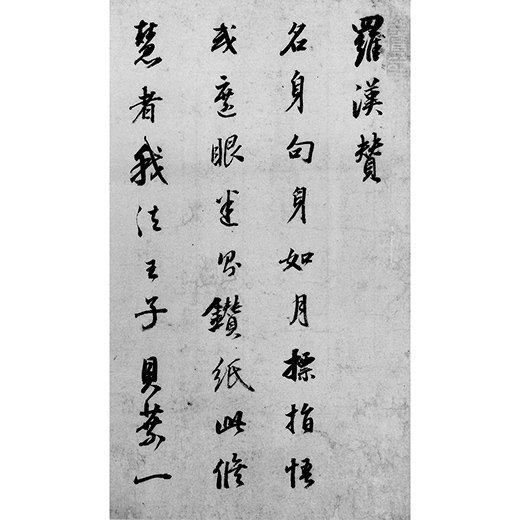 羅漢贊
名身句身如月標指悟
或遮眼迷鑽紙此脩
慧者我法王子貝葉一